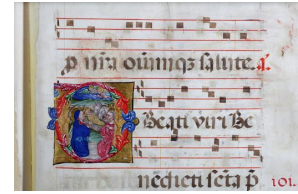 p nr̄a om̄niūqz salute. a.
Beati viri Be
nedicti sctā p̄
101.